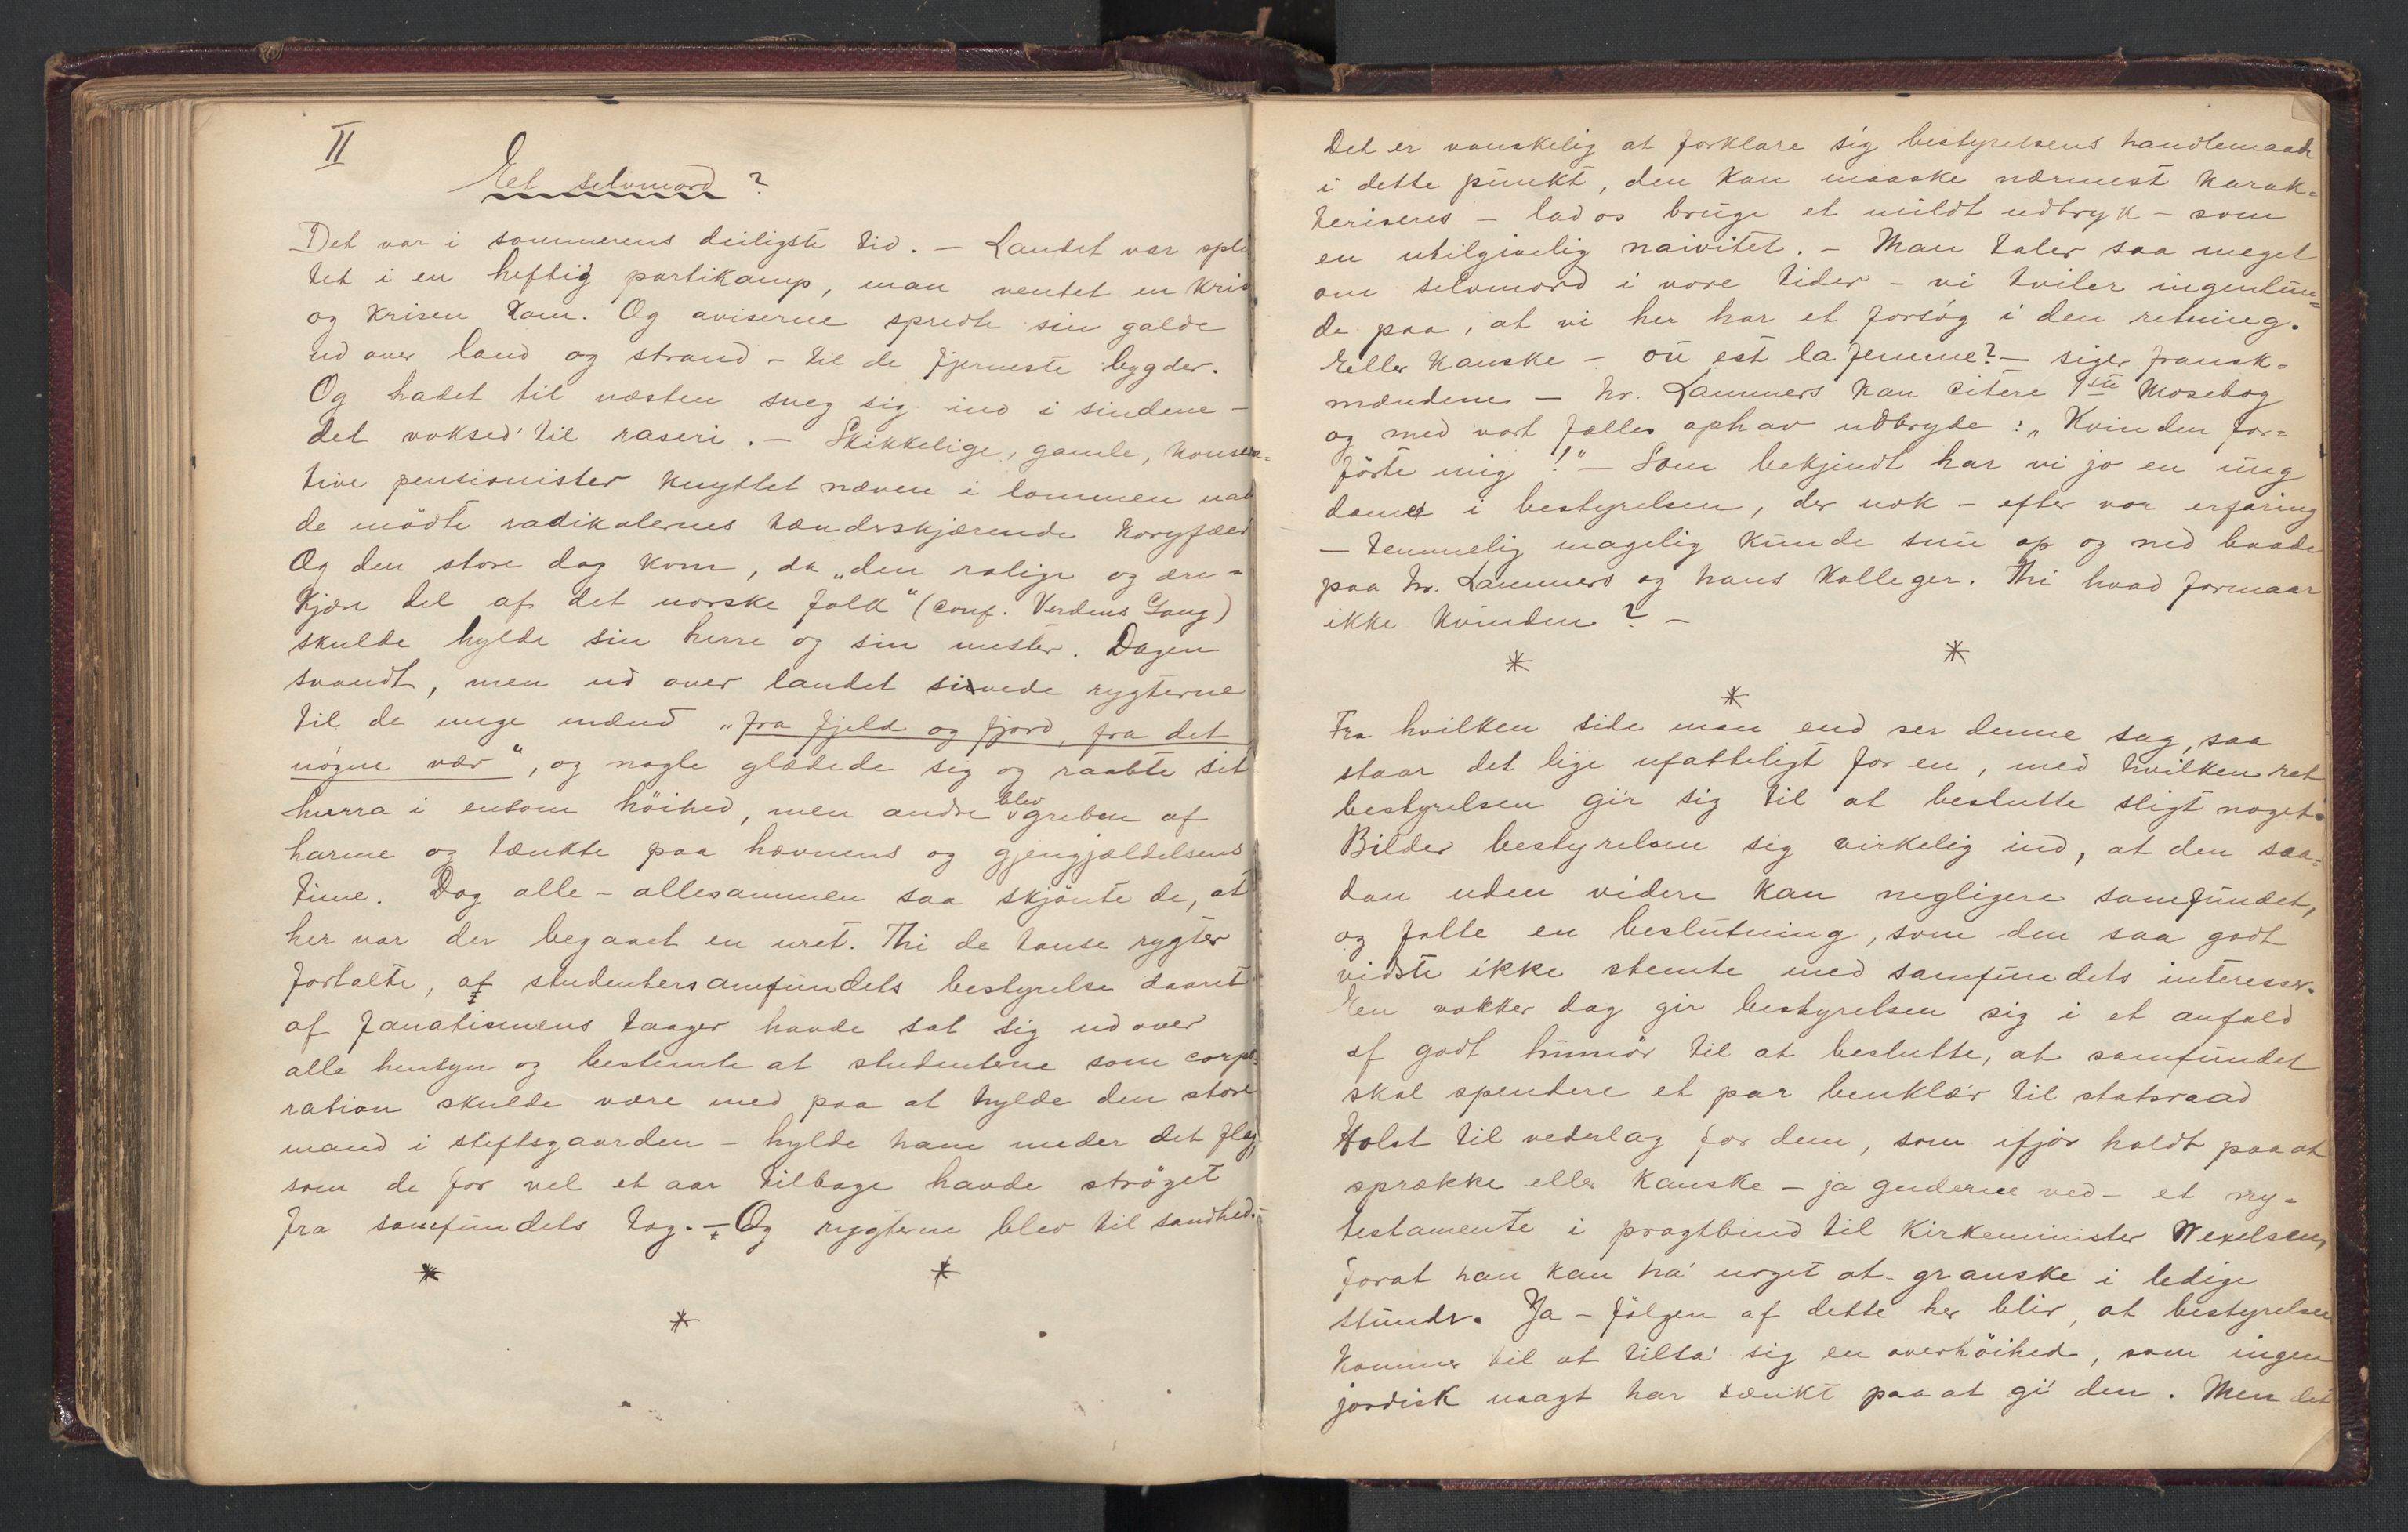 II
Et selvmord?
Det var i sommerens deiligste tid. – Landet var split
tet i en heftig partikamp, man ventet en kris
og krisen kom. Og aviserne spredte sin galde
ud over land og strand – til de fjerneste bygder.
Og hadet til næsten sneg sig ind i sindene –
det voksed' til raseri. – Skikkelige, gamle, konserva=
tive pensionister knyttet næven i lommen naar
de mödte radikalernes tændrskjærende koryfæer
Og den store dag kom, da „den rolige og ære=
kjære del af det norske folk" (conf. Verdens Gang)
skulde hylde sin herre og sin mester. Dagen
svandt, men ud over landet sivede rygterne
til de unge mænd „fra fjeld og fjord, fra det
nögne vær", og nogle glædede sig og raabte sit
hurra i ensom höihed, men andre blev greben af
harme og tænkte paa hævnens og gjengjældelsens
time. Dog alle – allesammen saa skjönte de, at
her var der begaaet en uret. Thi de tause rygter
fortalte, at studentersamfundets bestyrelse daaret
af fanatismens taager havde sat sig ud over
alle hensyn og bestemte at studenterne som corpo=
ration skulde være med paa at hylde den store
mand i stiftsgaarden – hylde ham under det flag,
som de for vel et aar tilbage havde ströget
fra samfundets tag. – Og rygterne blev til sandhed. –
* *
*
Det er vanskelig at forklare sig bestyrelsens handlemaade
i dette punkt, den kan maaske nærmest karak=
teriseres – lad os bruge et mildt udtryk – som
en utilgivelig naivitet. – Man taler saa meget
om selvmord i vore tider – vi tviler ingenlun=
de paa, at vi her har et forsög i den retning.
Eller kanske – où est la femme? – siger fransk=
mændene – hr. Lammers kan citere 1ste Mosebog
og med vort fælles ophav udbryde: „Kvinden for=
förte mig!" – Som bekjendt har vi jo en ung
dame i bestyrelsen, der nok – efter vor erfaring
– temmelig magelig kunde snu op og ned baade
paa hr. Lammers og hans kolleger. Thi hvad formaar
ikke kvinden? –
* *
*
Fra hvilken side man end ser denne sag, saa
staar det lige ufatteligt for en, med hvilken ret
bestyrelsen gir sig til at beslutte sligt noget.
Bilder bestyrelsen sig virkelig ind, at den saa=
dan uden videre kan negligere samfundet,
og fatte en beslutning, som den saa godt
vidste ikke stemte med samfundets interesser.
En vakker dag gir bestyrelsen sig i et anfald
af godt humör til at beslutte, at samfundet
skal spendere et par benklær til statsraad
Holst til vederlag for dem, som ifjor holdt paa at
sprække eller kanske – ja guderne ved – et ny=
testamente i pragtbind til kirkeminister Wexelsen,
forat han kan ha' noget at granske i ledige
stunder. Ja – fölgen af dette her blir, at bestyrelsen
kommer til at tilta' sig en overhöihed, som ingen
jordisk magt har tænkt paa at gi' den. Men det